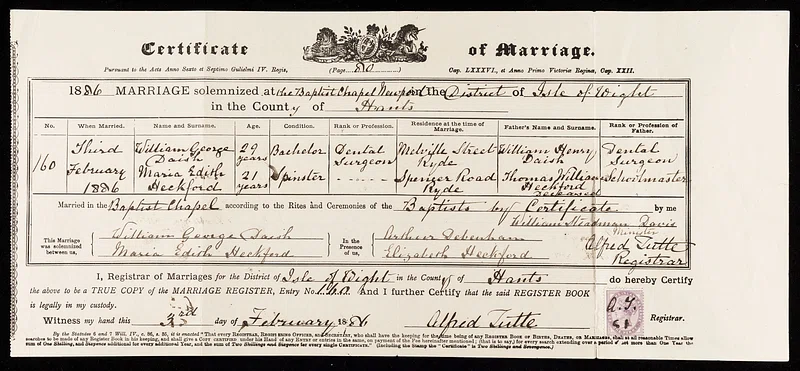 Certificate of Marriage.
Pursuant to the Acts Anno Sexto et Septimo Gulielmi IV. Regis, (Page 80) Cap. LXXXVI., et Anno Primo Victoriæ Reginæ, Cap. XXII.
1886 MARRIAGE solemnized at the Baptist Chapel Newport in the District of Isle of Wight
in the County of Hants
No. When Married. Name and Surname. Age. Condition. Rank or Profession. Residence at the time of Marriage. Father's Name and Surname. Rank or Profession of Father.
160 Third February 1886
William George Daish 29 years Bachelor Dental Surgeon Melville Street Ryde William Henry Daish Dental Surgeon
Maria Edith Heckford 21 years Spinster Spencer Road Ryde Thomas William Heckford deceased Schoolmaster
Married in the Baptist Chapel according to the Rites and Ceremonies of the Baptists by Certificate by me
William Steadman Davis
Minister
This Marriage was solemnized between us, William George Daish Maria Edith Heckford in the Presence of us, Arthur Debenham Elizabeth Heckford
Alfred Tutte
Registrar
I, Registrar of Marriages for the District of Isle of Wight in the County of Hants do hereby Certify
the above to be a TRUE COPY of the MARRIAGE REGISTER, Entry No. 160 And I further Certify that the said REGISTER BOOK
is legally in my custody.
Witness my hand this 3rd day of February 1886 Alfred Tutte Registrar.
A.T.
By the Statute 6 and 7 Will. IV., c. 86, s. 35, it is enacted "That every REGISTRAR, REGISTERING OFFICER, and SECRETARY, who shall have the keeping for the time being of any REGISTER BOOK OF BIRTHS, DEATHS, OR MARRIAGES, shall at all reasonable Times allow
searches to be made of any Register Book in his keeping, and shall give a COPY CERTIFIED under his Hand of any ENTRY or ENTRIES in the same, on payment of the Fee hereinafter mentioned; (that is to say,) for every search extending over a period not more than One Year the
sum of One Shilling, and Sixpence additional for every additional Year, and the Sum of Two Shillings and Sixpence for every single CERTIFICATE." (Including the Stamp the "Certificate" is Two Shillings and Sevenpence.)